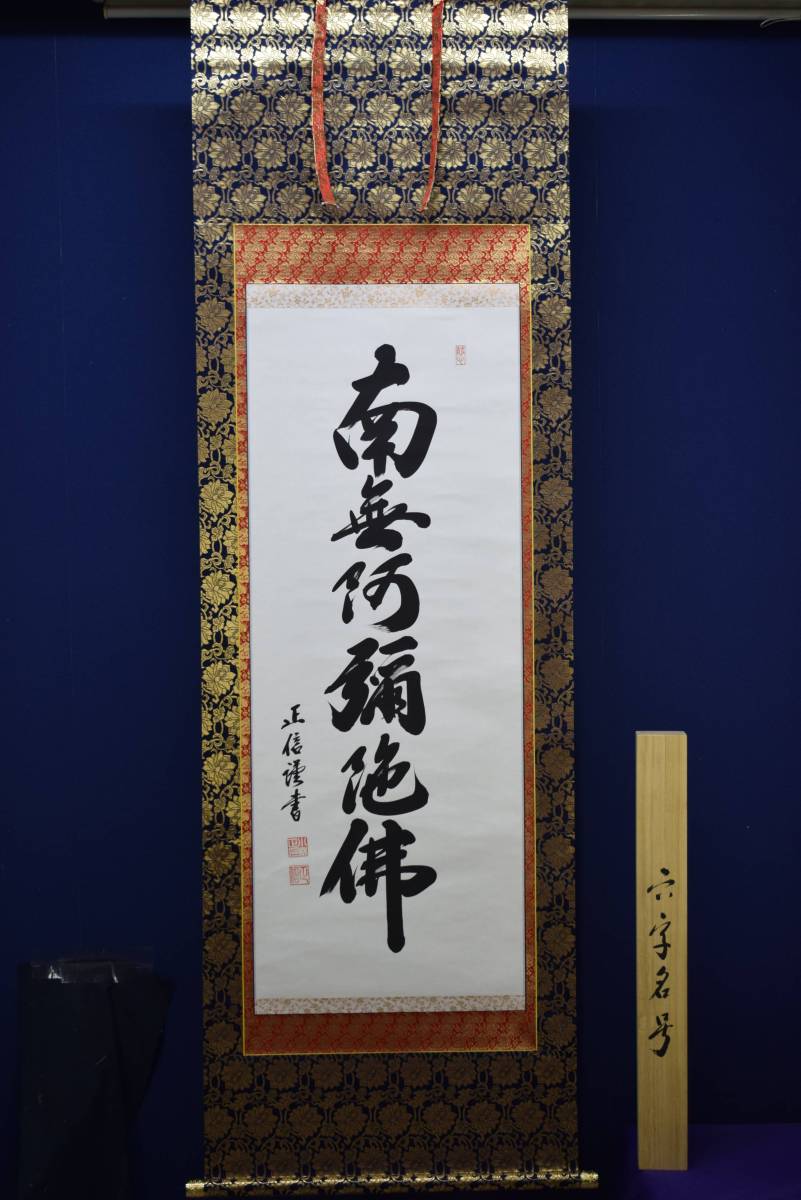 南無阿彌陀佛
正信謹書
六字名号